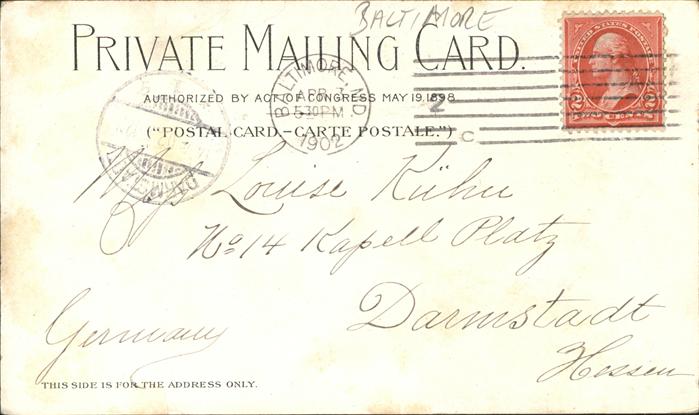 BALTIMORE
PRIVATE MAILING CARD.
AUTHORIZED BY ACT OF CONGRESS MAY 19, 1898
("POSTAL CARD – CARTE POSTALE.")
BALTIMORE, MD.
APR
5-30PM
1902
2
C
UNITED STATES POSTAGE
2 TWO CENTS 2
DARMSTADT
Louise Kühn
No 14 Kapell Platz
Darmstadt
Germany
Hessen
THIS SIDE IS FOR THE ADDRESS ONLY.